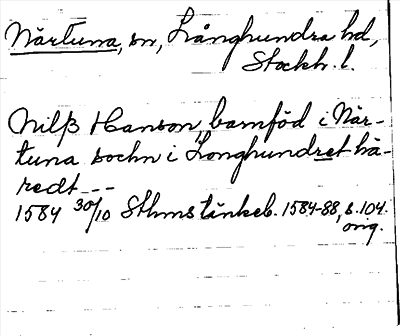 Närtuna, sn, Långhundra hd,
Stockh. l.
Nilß Hanson barnföd i När-
tuna sochn i Longhundret hä-
redt ---
1584 30/10 Sthms tänkeb. 1584-88, s. 104.
orig.